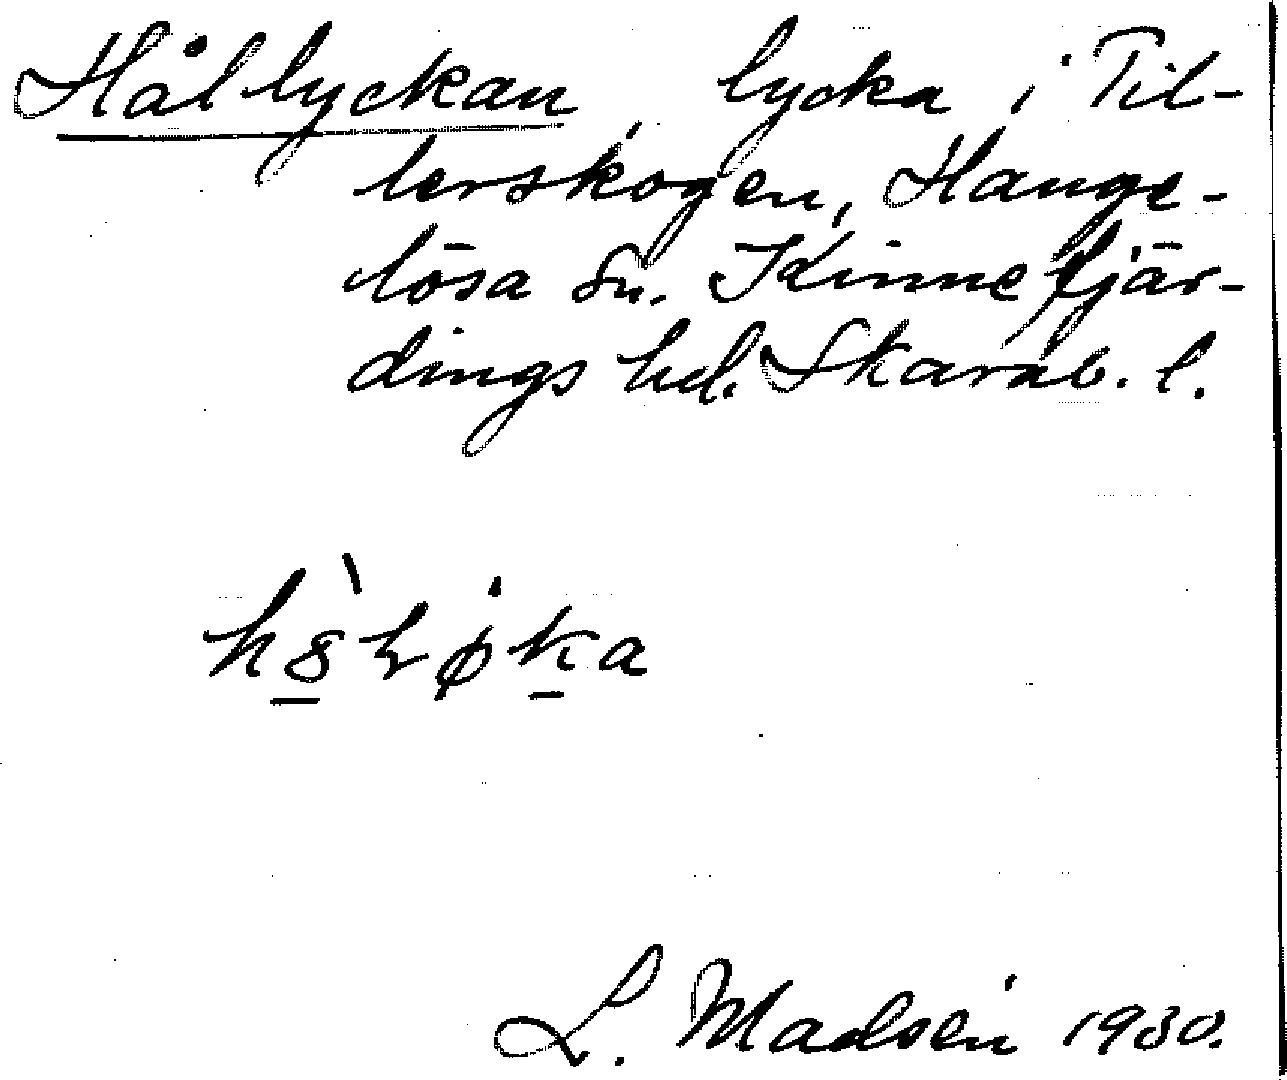 Hållyckan, lycka i Til-
lerskogen, Hange-
lösa sn. Kinnefjär-
dings hd. Skarab. l.
L. Madsén 1930.